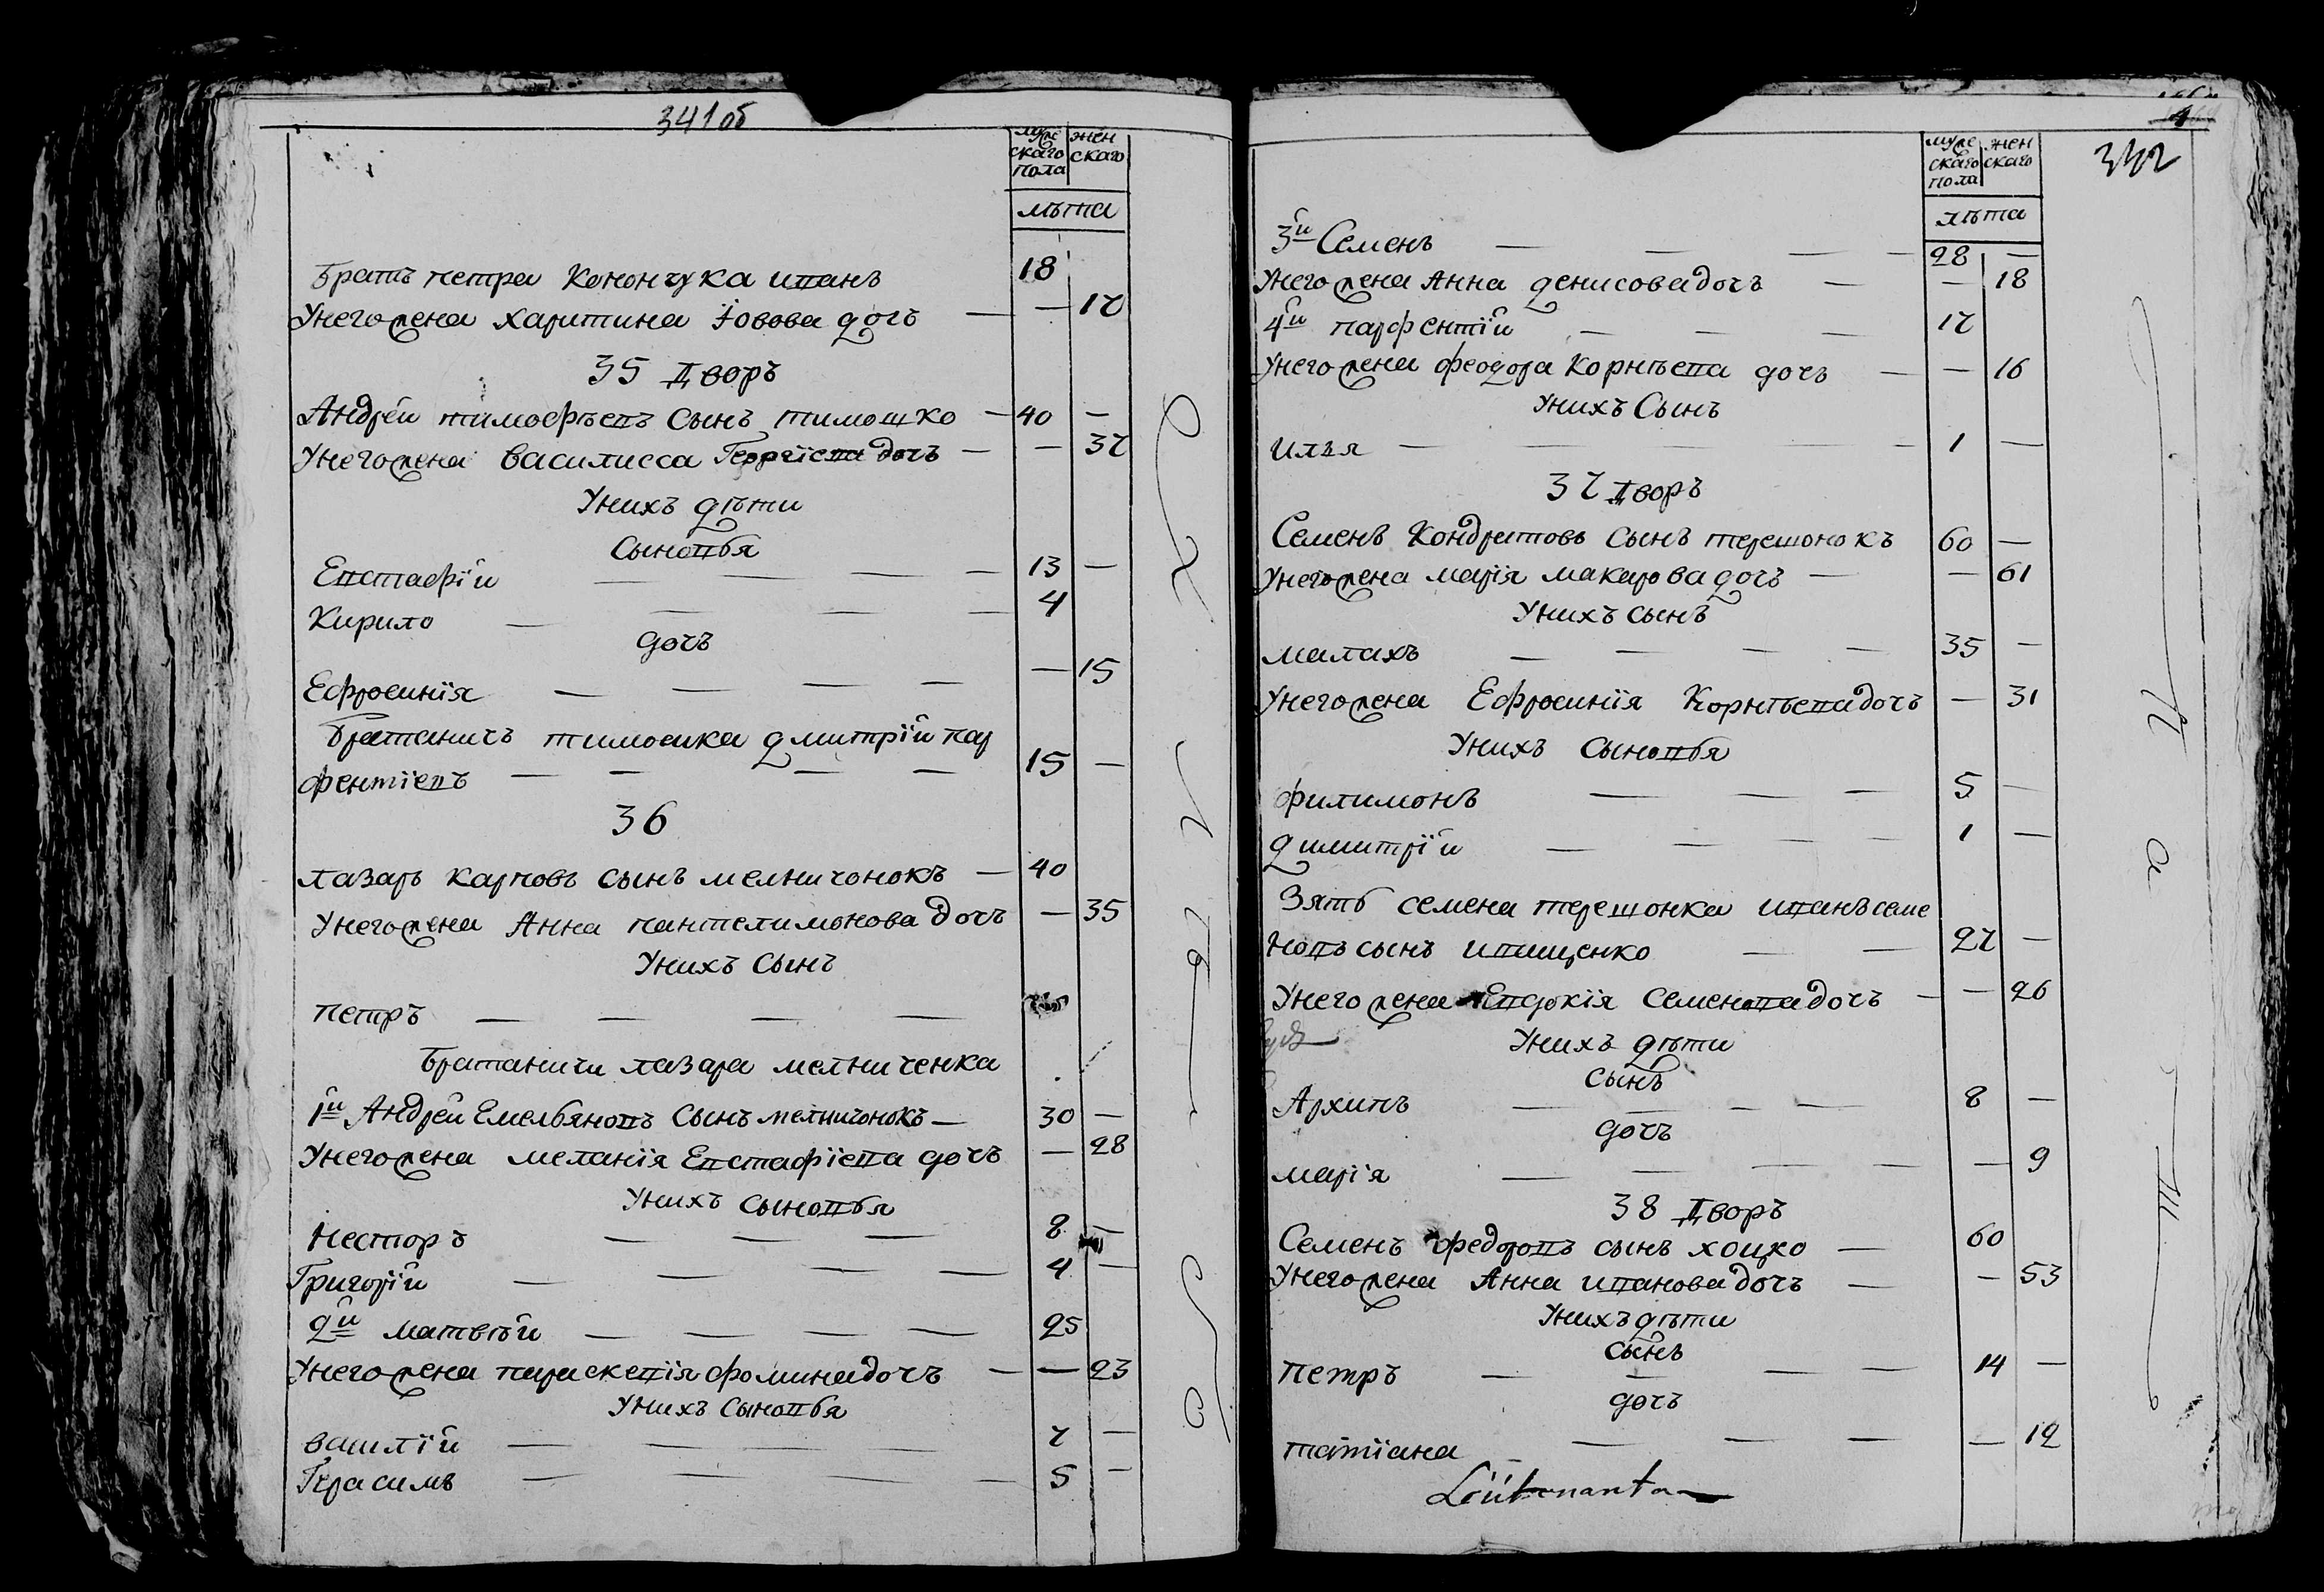 341об
муже
скаго
пола
жен
скаго
лѣта
Братъ петра Конончука иванъ 18
Унего жена харитина Іовова дочъ — — 17
35 Дворъ
Андрей тимофѣевъ Сынъ тимошко — 40 —
Унего жена василисса Георгіева дочъ — — 37
Унихъ дѣти
Сыновья
Евстафій — — — — 13 —
Кирило — — — — 4
дочъ
Ефросинія — — — — — 15
Братаничъ тимошка дмитрій пар
фентіевъ — — — — 15 —
36
лазарь карповъ сынъ мелничонокъ — 40
Унего жена Анна пантелимонова дочъ — 35
Унихъ Сынъ
петръ — — — —
Братаничи лазара мелниченка
1й Андрей Емельяновъ Сынъ мелничонокъ — 30 —
Унего жена меланія Евстафіева дочъ — 28
Унихъ сыновья
Несторъ — — — 8 —
Григорій — — — — 4 —
2й матвѣй — — — — 25
Унего жена параскевія фомина дочъ — — 23
Унихъ Сыновья
василій — — — — 7 —
Герасимъ — — — — 5 —
муже
скаго
пола
жен
скаго
342
лѣта
3й Семенъ — — — — 28 —
Унего жена Анна денисова дочъ — — 18
4й парфентій — — — 17
Унего жена феодора Корнѣева дочъ — — 16
Унихъ Сынъ
илъя — — — 1 —
37 Дворъ
Семенъ Кондратовъ сынъ терешонокъ 60 —
Унего жена марія макарова дочъ — — 61
Унихъ сынъ
малахъ — — — — 35 —
Унего жена Ефросинія Корнѣева дочъ — 31
Унихъ Сыновья
филимонъ — — — 5 —
димитрій — — — — 1 —
Зять семена терешонка иванъ семе
новъ сынъ иващенко — — 27 —
Унего жена Евдокія Семенова дочъ — — 26
Унихъ дѣти
сынъ
Архипъ — — — — 8 —
дочъ
марія — — — — — 9
38 Дворъ
Семенъ федоровъ сынъ хоцко — 60
Унего жена Анна иванова дочъ — — 53
Унихъ дѣти
сынъ
петръ — — — — 14 —
дочъ
татіана — — — — 12